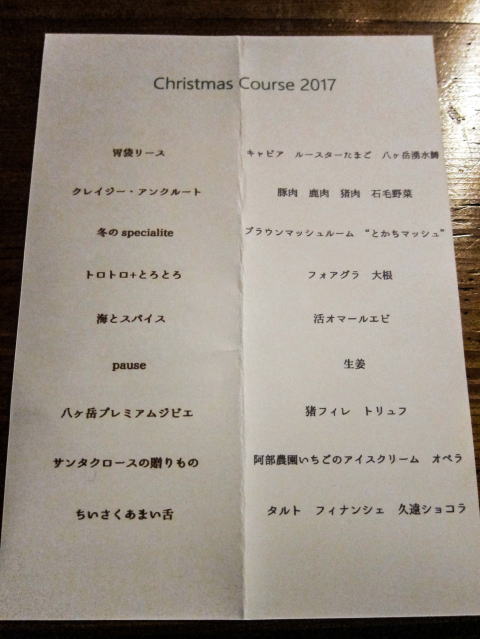 Christmas Course 2017
胃袋リース キャビア ルースターたまご 八ヶ岳湧水鱒
クレイジー・アンクルート 豚肉 鹿肉 猪肉 石毛野菜
冬のspecialite ブラウンマッシュルーム “とかちマッシュ”
トロトロ+とろとろ フォアグラ 大根
海とスパイス 活オマールエビ
pause 生姜
八ヶ岳プレミアムジビエ 猪フィレ トリュフ
サンタクロースの贈りもの 阿部農園いちごのアイスクリーム オペラ
ちいさくあまい舌 タルト フィナンシェ 久遠ショコラ